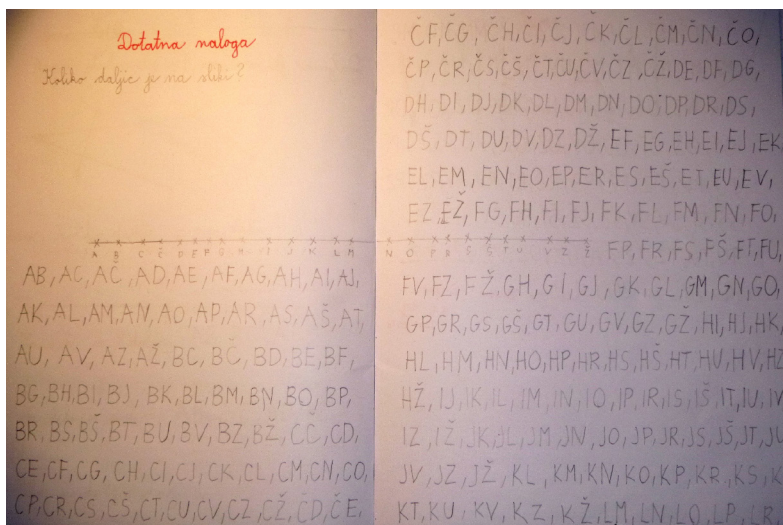 Dotatna naloga
Koliko daljic je na sliki?
A B C Č D E F G H I J K L M
AB, AC, AČ, AD, AE, AF, AG, AH, AI, AJ,
AK, AL, AM, AN, AO, AP, AR, AS, AŠ, AT,
AU, AV, AZ, AŽ, BC, BČ, BD, BE, BF,
BG, BH, BI, BJ, BK, BL, BM, BN, BO, BP,
BR, BS, BŠ, BT, BU, BV, BZ, BŽ, CČ, CD,
CE, CF, CG, CH, CI, CJ, CK, CL, CM, CN, CO,
CP, CR, CS, CŠ, CT, CU, CV, CZ, CŽ, ČD, ČE,
ČF, ČG, ČH, ČI, ČJ, ČK, ČL, ČM, ČN, ČO,
ČP, ČR, ČS, ČŠ, ČT, ČU, ČV, ČZ, ČŽ, DE, DF, DG,
DH, DI, DJ, DK, DL, DM, DN, DO, DP, DR, DS,
DŠ, DT, DU, DV, DZ, DŽ, EF, EG, EH, EI, EJ, EK
EL, EM, EN, EO, EP, ER, ES, EŠ, ET, EU, EV,
EZ, EŽ, FG, FH, FI, FJ, FK, FL, FM, FN, FO,
N O P R S Š T U V Z Ž FP, FR, FS, FŠ, FT, FU,
FV, FZ, FŽ, GH, GI, GJ, GK, GL, GM, GN, GO,
GP, GR, GS, GŠ, GT, GU, GV, GZ, GŽ, HI, HJ, HK
HL, HM, HN, HO, HP, HR, HS, HŠ, HT, HU, HV, HZ
HŽ, IJ, IK, IL, IM, IN, IO, IP, IR, IS, IŠ, IT, IU, IV
IZ, IŽ, JK, JL, JM, JN, JO, JP, JR, JS, JŠ, JT, JU
JV, JZ, JŽ, KL, KM, KN, KO, KP, KR, KS, K
KT, KU, KV, KZ, KŽ, LM, LN, LO, LP, LR